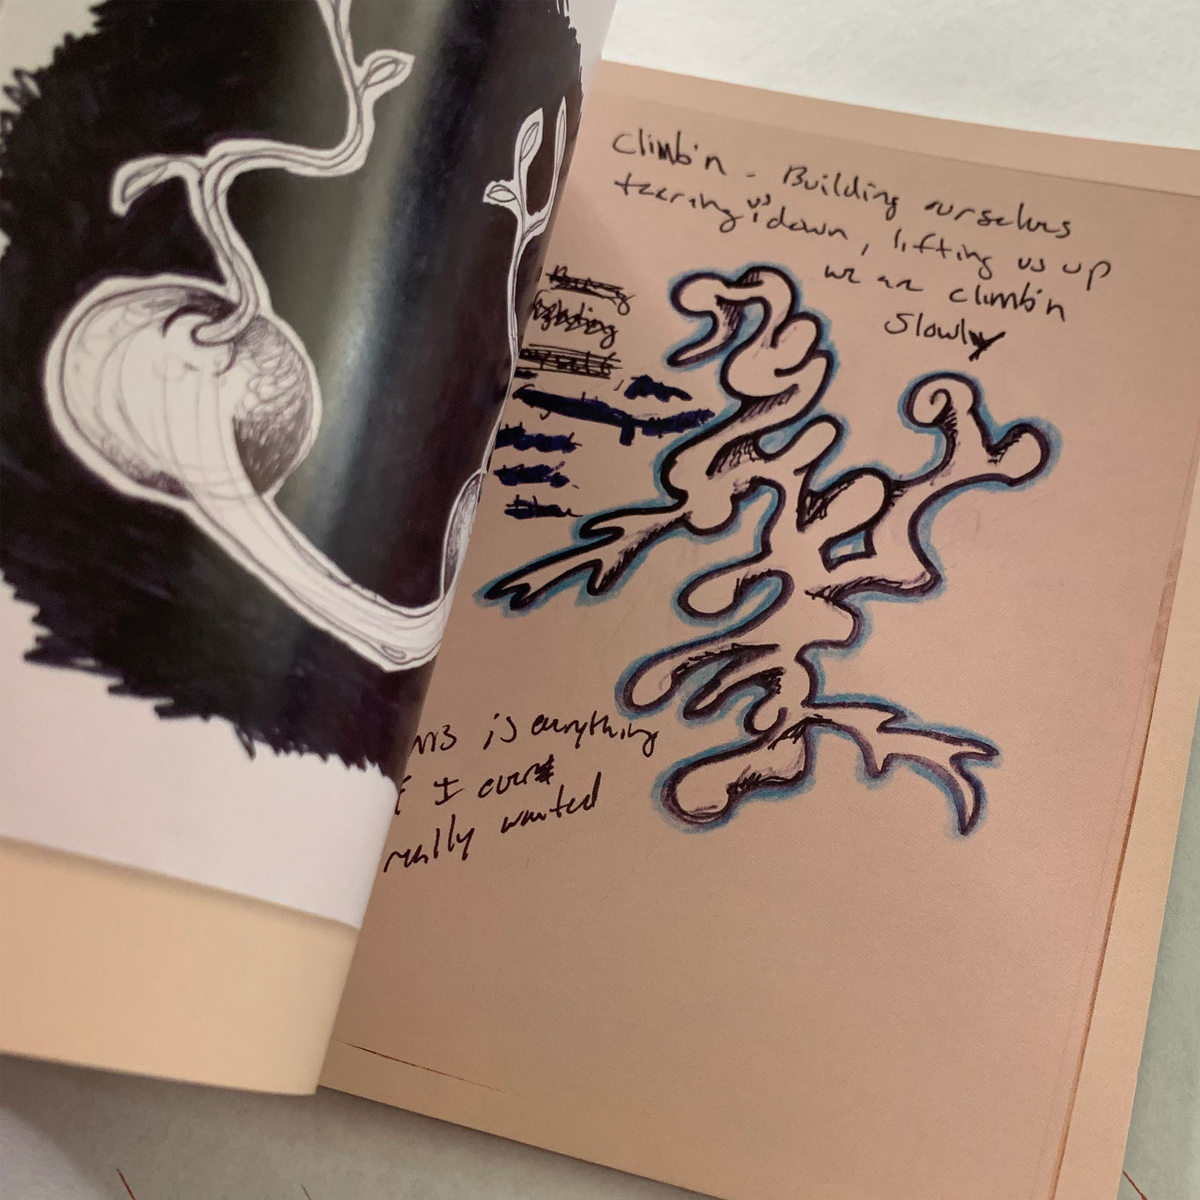 climb'n - Building ourselves
tearing us down, lifting us up
we are climb'n
Slowly
is everything
I ever
really wanted